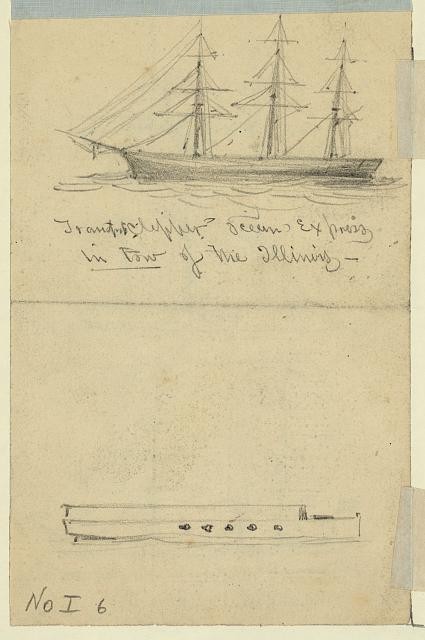 Transpt Clipper "Ocean Express
in tow of the Illinois —
No I 6